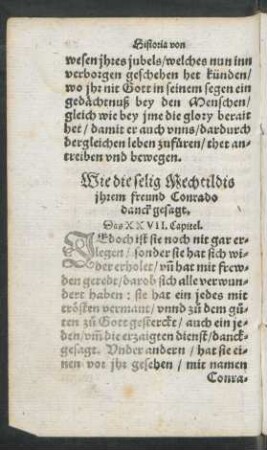 Historia von
wesen jhres jubels/welches nun inn
verborgen geschehen het künden/
wo jhr nit Gott in seinem segen ein
gedächtnuß bey den Menschen/
gleich wie bey jme die glory berait
het/ damit er auch vnns/dardurch
dergleichen leben zufüren/thet an-
treiben vnd bewegen.
Wie die selig Mechtildis
jhrem freund Conrado
danck gesagt.
Das XXVII. Capitel.
JEdoch ist sie noch nit gar er-
legen/ sonder sie hat sich wi-
der erholet/ vn̄ hat mit frew-
den geredt/darob sich alle verwun-
dert haben: sie hat ein jedes mit
trösten vermant/ vnnd zů dem gů-
ten zů Gott gesterckt/ auch ein je-
den/vm̄ die erzaigten dienst/danck-
gesagt. Vnder andern / hat sie ei-
nen vor jhr gesehen / mit namen
Conra-